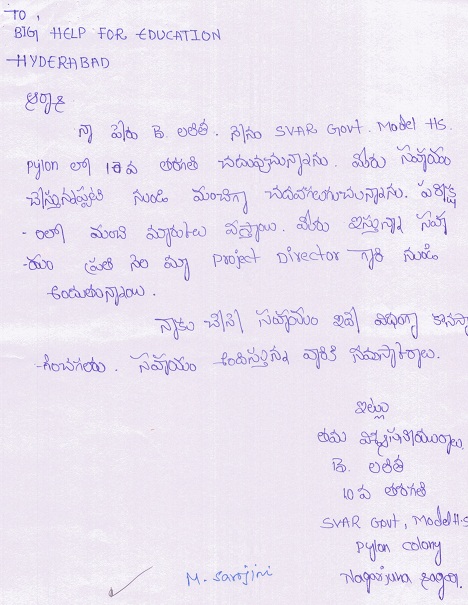 TO,
BIG HELP FOR EDUCATION
HYDERABAD
ఆర్యా
నా పేరు B. లలిత. నేను SVAR Govt. Model HS.
pylon లో 10వ తరగతి చదువుచున్నాను. మీరు సహాయం
చేస్తున్నప్పటి నుండి మంచిగా చదవగలుగుచున్నాను. పరీక్ష
-లలో మంచి మార్కులు వస్తాయి. మీరు ఇస్తున్న సహా
-యం ప్రతి నెల మా Project Director గారి నుండి
అందుతున్నాయి.
నాకు చేసే సహాయం ఇదే విధంగా కొనసా
-గించగలరు. సహాయం అందిస్తున్న వారికి నమస్కారాలు.
ఇట్లు
తమ విశ్వసనీయురాలు
B. లలిత
10వ తరగతి
SVAR Govt, Model H.S
pylon colony
Nagarjuna Sagar.
M. Sarojini